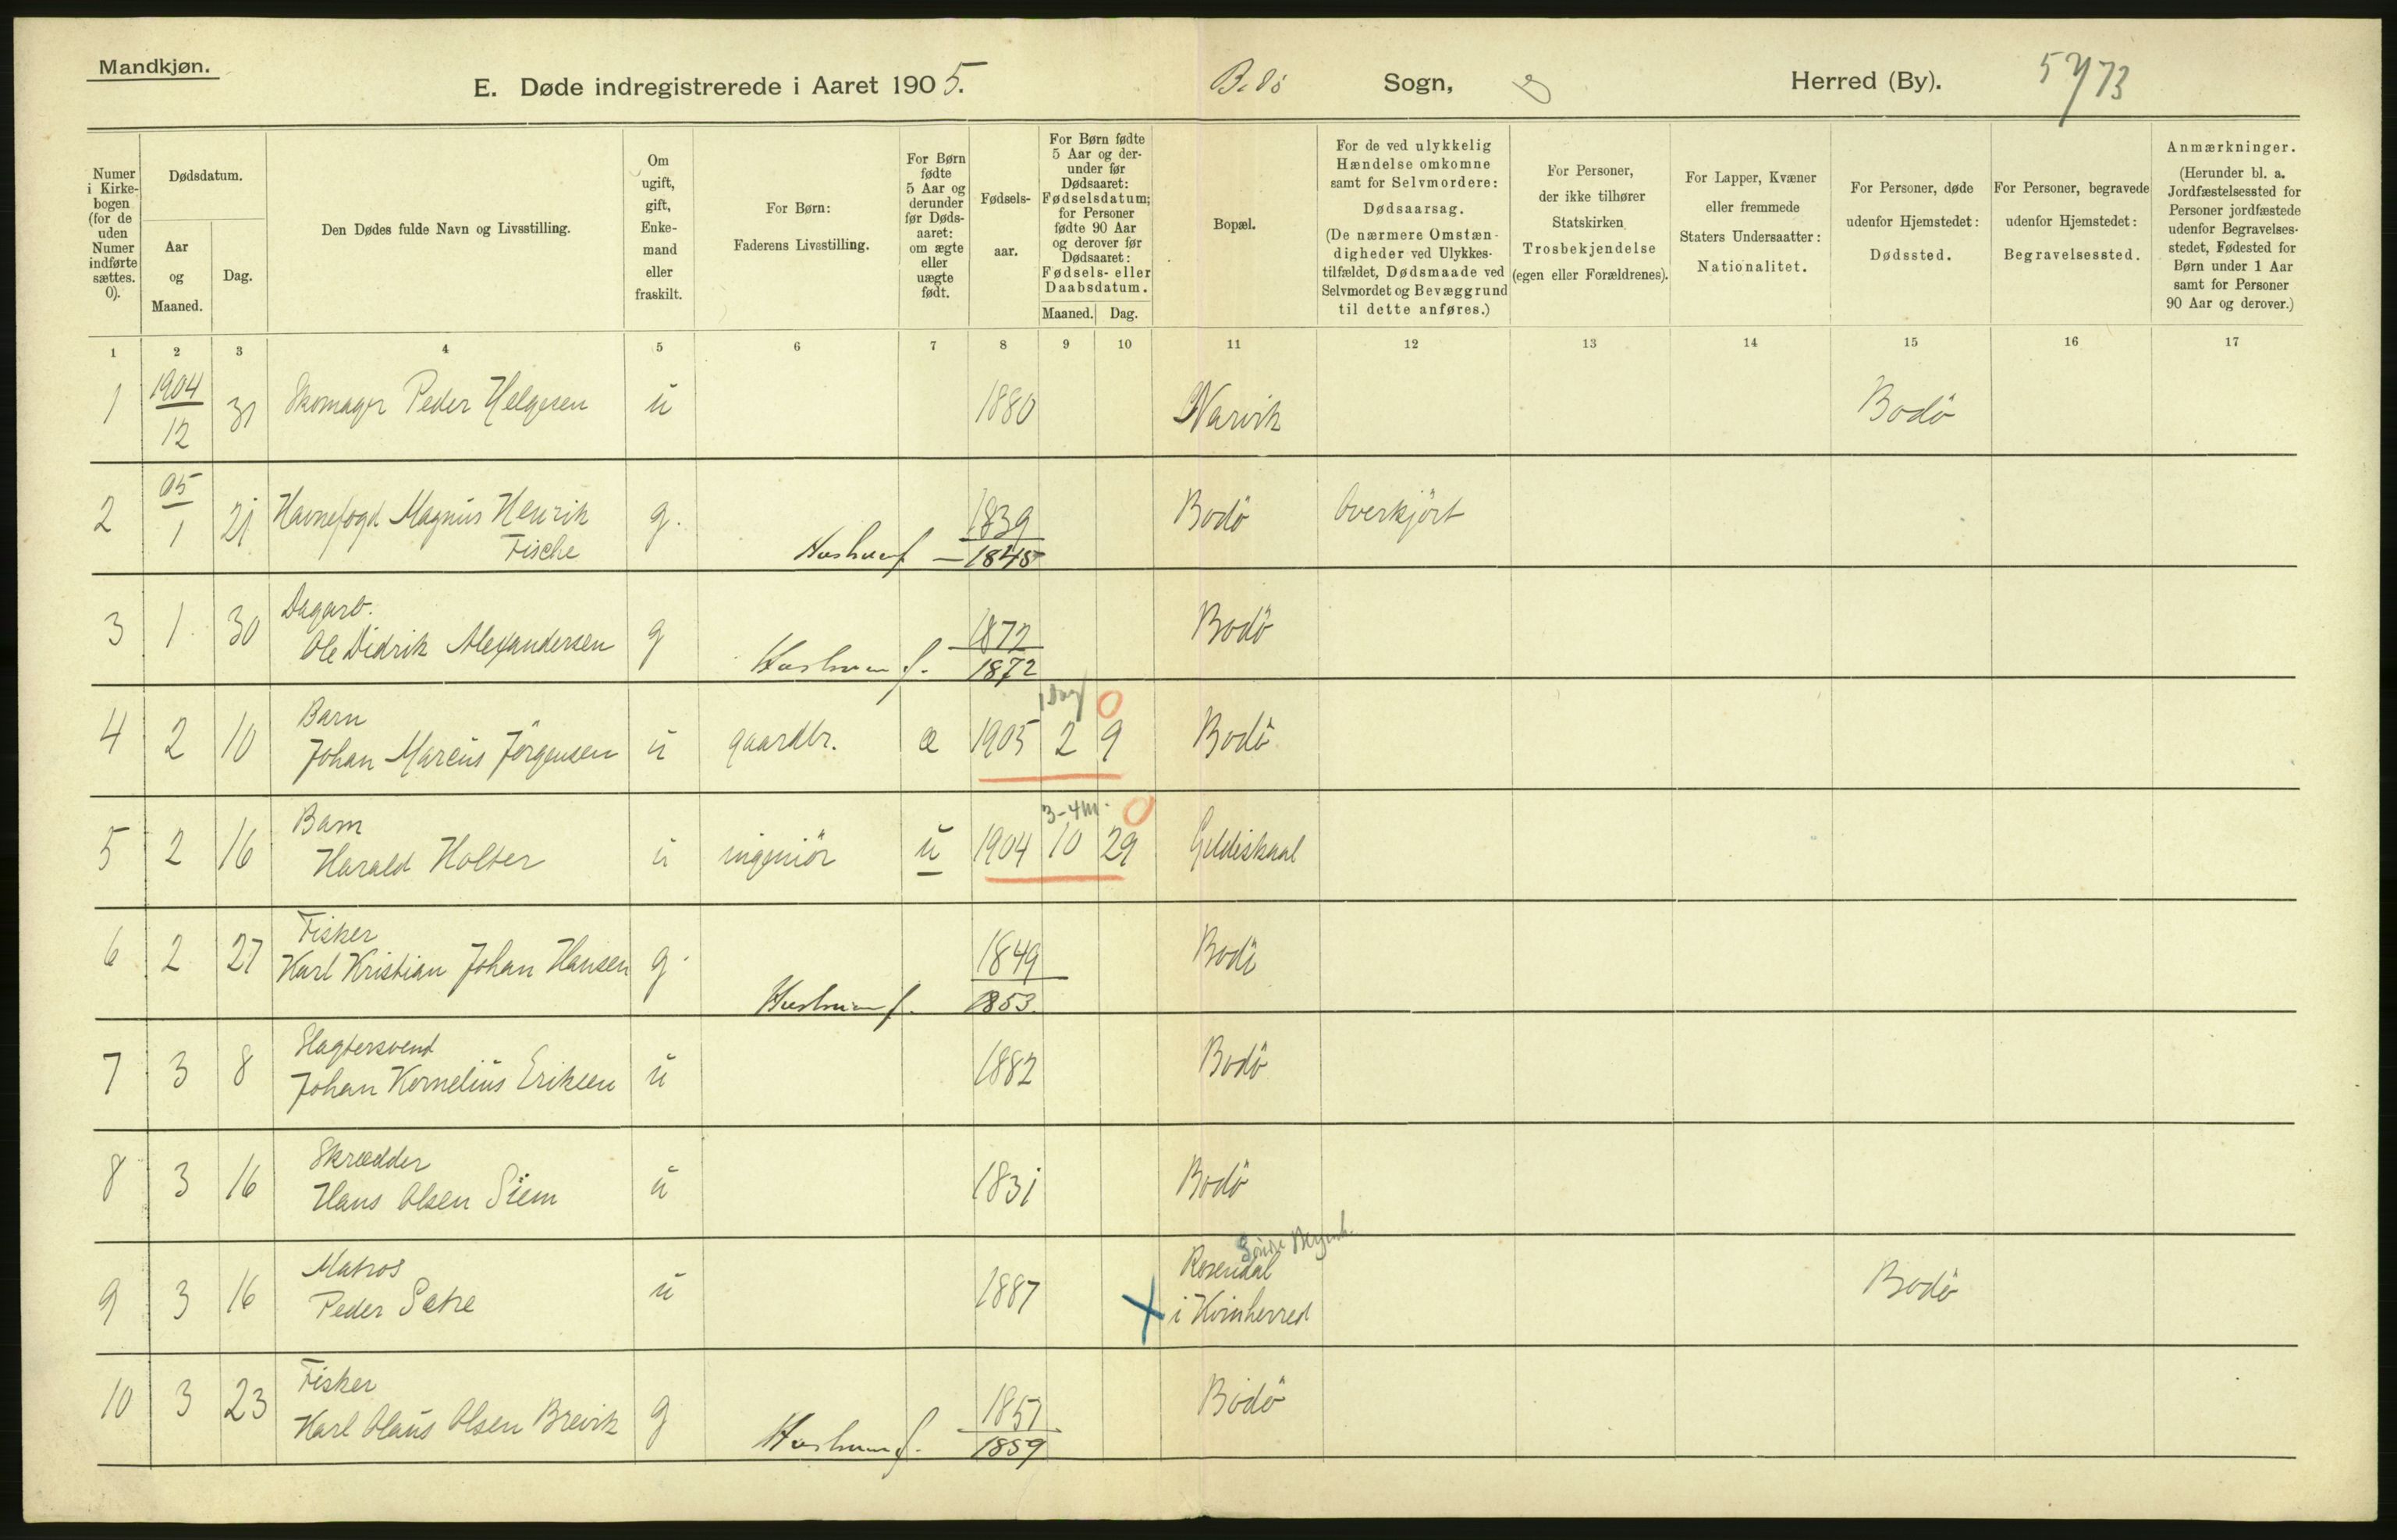 Mandkjøn.
E. Døde indregistrerede i Aaret 1905. Bodö Sogn, Herred (By). 5773
Numer i Kirke-bogen (for de uden Numer indførte sættes. 0).
Dødsdatum.
Aar og Maaned.
Dag.
Den Dødes fulde Navn og Livsstilling.
Om ugift, gift, Enke-mand eller fraskilt.
For Børn:
Faderens Livsstilling.
For Børn fødte 5 Aar og derunder før Døds-aaret: om ægte eller uægte født.
Fødsels-aar.
For Børn fødte 5 Aar og der-under før Dødsaaret: Fødselsdatum; for Personer fødte 90 Aar og derover før Dødsaaret: Fødsels- eller Daabsdatum.
Maaned. Dag.
Bopæl.
For de ved ulykkelig Hændelse omkomne samt for Selvmordere:
Dødsaarsag.
(De nærmere Omstæn-digheder ved Ulykkes-tilfældet, Dødsmaade ved Selvmordet og Bevæggrund til dette anføres.)
For Personer, der ikke tilhører Statskirken Trosbekjendelse (egen eller Forældrenes).
For Lapper, Kvæner eller fremmede Staters Undersaatter: Nationalitet.
For Personer, døde udenfor Hjemstedet: Dødssted.
For Personer, begravede udenfor Hjemstedet: Begravelsessted.
Anmærkninger.
(Herunder bl. a. Jordfæstelsessted for Personer jordfæstede udenfor Begravelses-stedet, Fødested for Børn under 1 Aar samt for Personer 90 Aar og derover.)
1 2 3 4 5 6 7 8 9 10 11 12 13 14 15 16 17
1 1904 12 31 Skomager Peder Helgesen u 1880 Narvik Bodö
2 05 1 21 Havnefogd Magnus Henrik g. 1839 Bodö Overkjört
Fische Hushusf — 1845
3 1 30 Dagarb.
Ole Didrik Alexandersen g 1872 Bodö
Hushusf. 1872
1 Dag 0
4 2 10 Barn
Johan Marcus Jörgensen u gaardbr. æ 1905 2 9 Bodö
3-4 m. 0
5 2 16 Barn
Harald Holter u ingeniör u 1904 10 29 Gildeskaal
6 2 27 Fisker
Karl Kristian Johan Hansen g. 1849 Bodö
Hushusf. 1853
7 3 8 Slagtersvend
Johan Kornelius Eriksen u 1882 Bodö
8 3 16 Skrædder
Hans Olsen Siem u 1831 Bodö
9 3 16 Matros
Peder Sætre u 1887 Rosendal Bodö
i Kvinherred
10 3 23 Fisker
Karl Olaus Olsen Breivik g 1851 Bodö
Hushusf. 1859